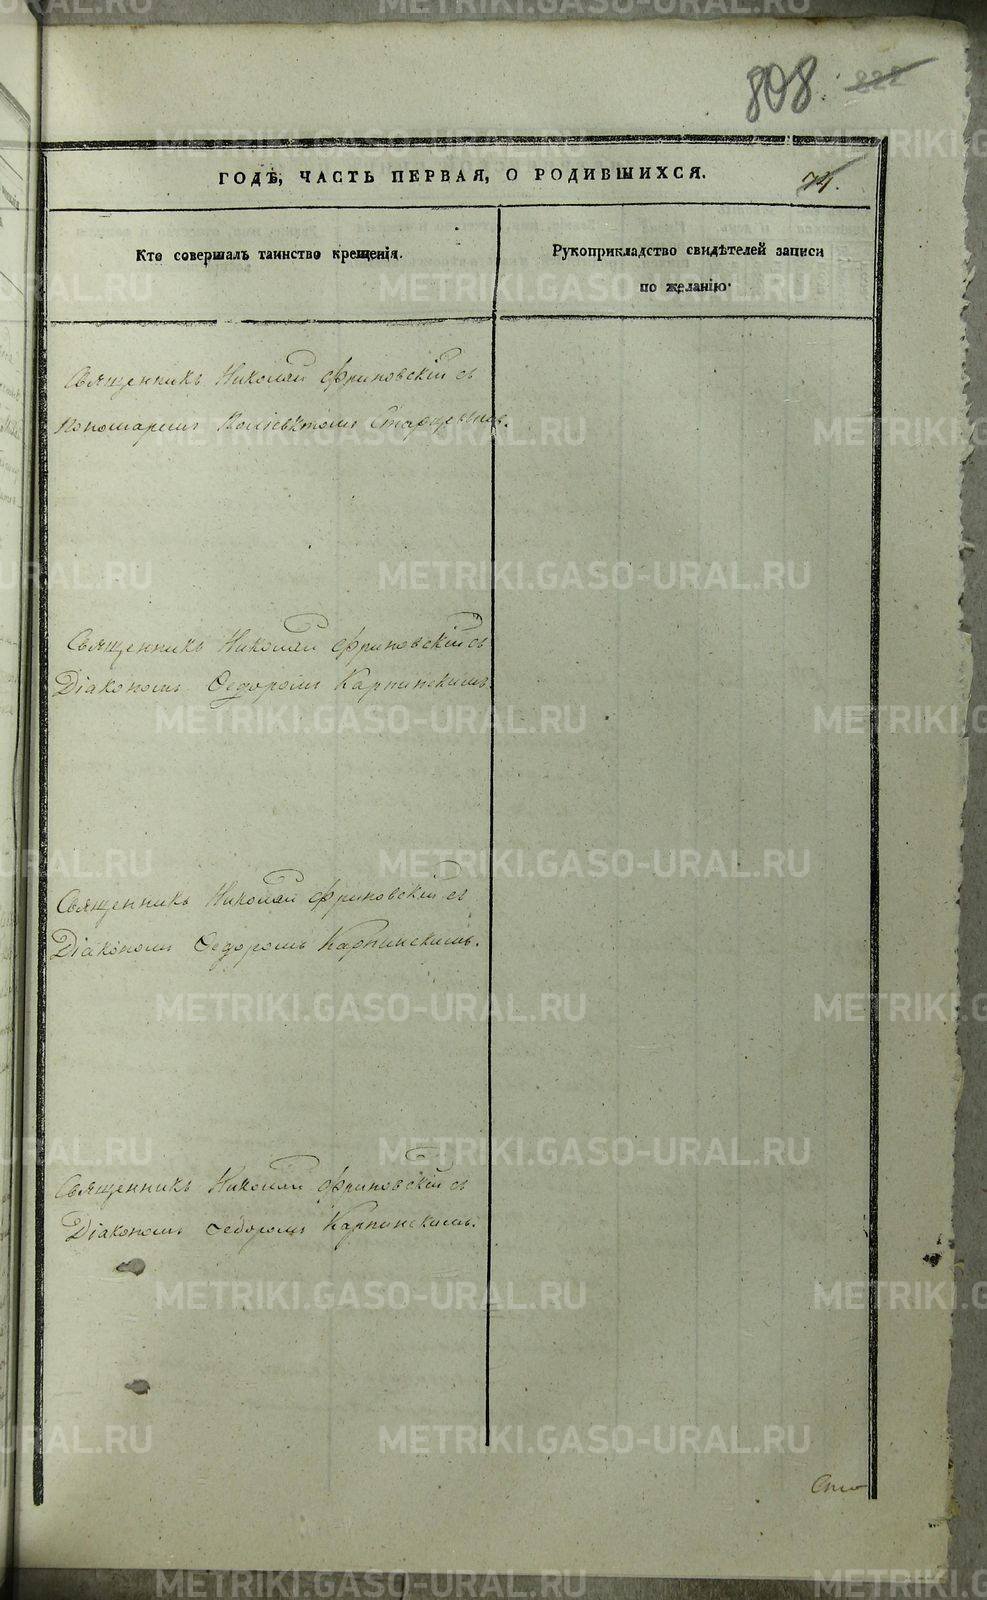 808. 822
ГОДѢ, ЧАСТЬ ПЕРВАЯ, О РОДИВШИХСЯ. 74.
Кто совершалъ таинство крещенія.
Рукоприкладство свидѣтелей записи
по желанію.
Священникъ Николай Фриновскій съ
Пономаремъ
Священникъ Николай Фриновскій съ
Діакономъ Ѳедоромъ Карпинскимъ.
Священникъ Николай Фриновскій съ
Діакономъ Ѳедоромъ Карпинскимъ.
Священникъ Николай Фриновскій съ
Діакономъ Ѳедоромъ Карпинскимъ.
METRIKI.GASO-URAL.RU